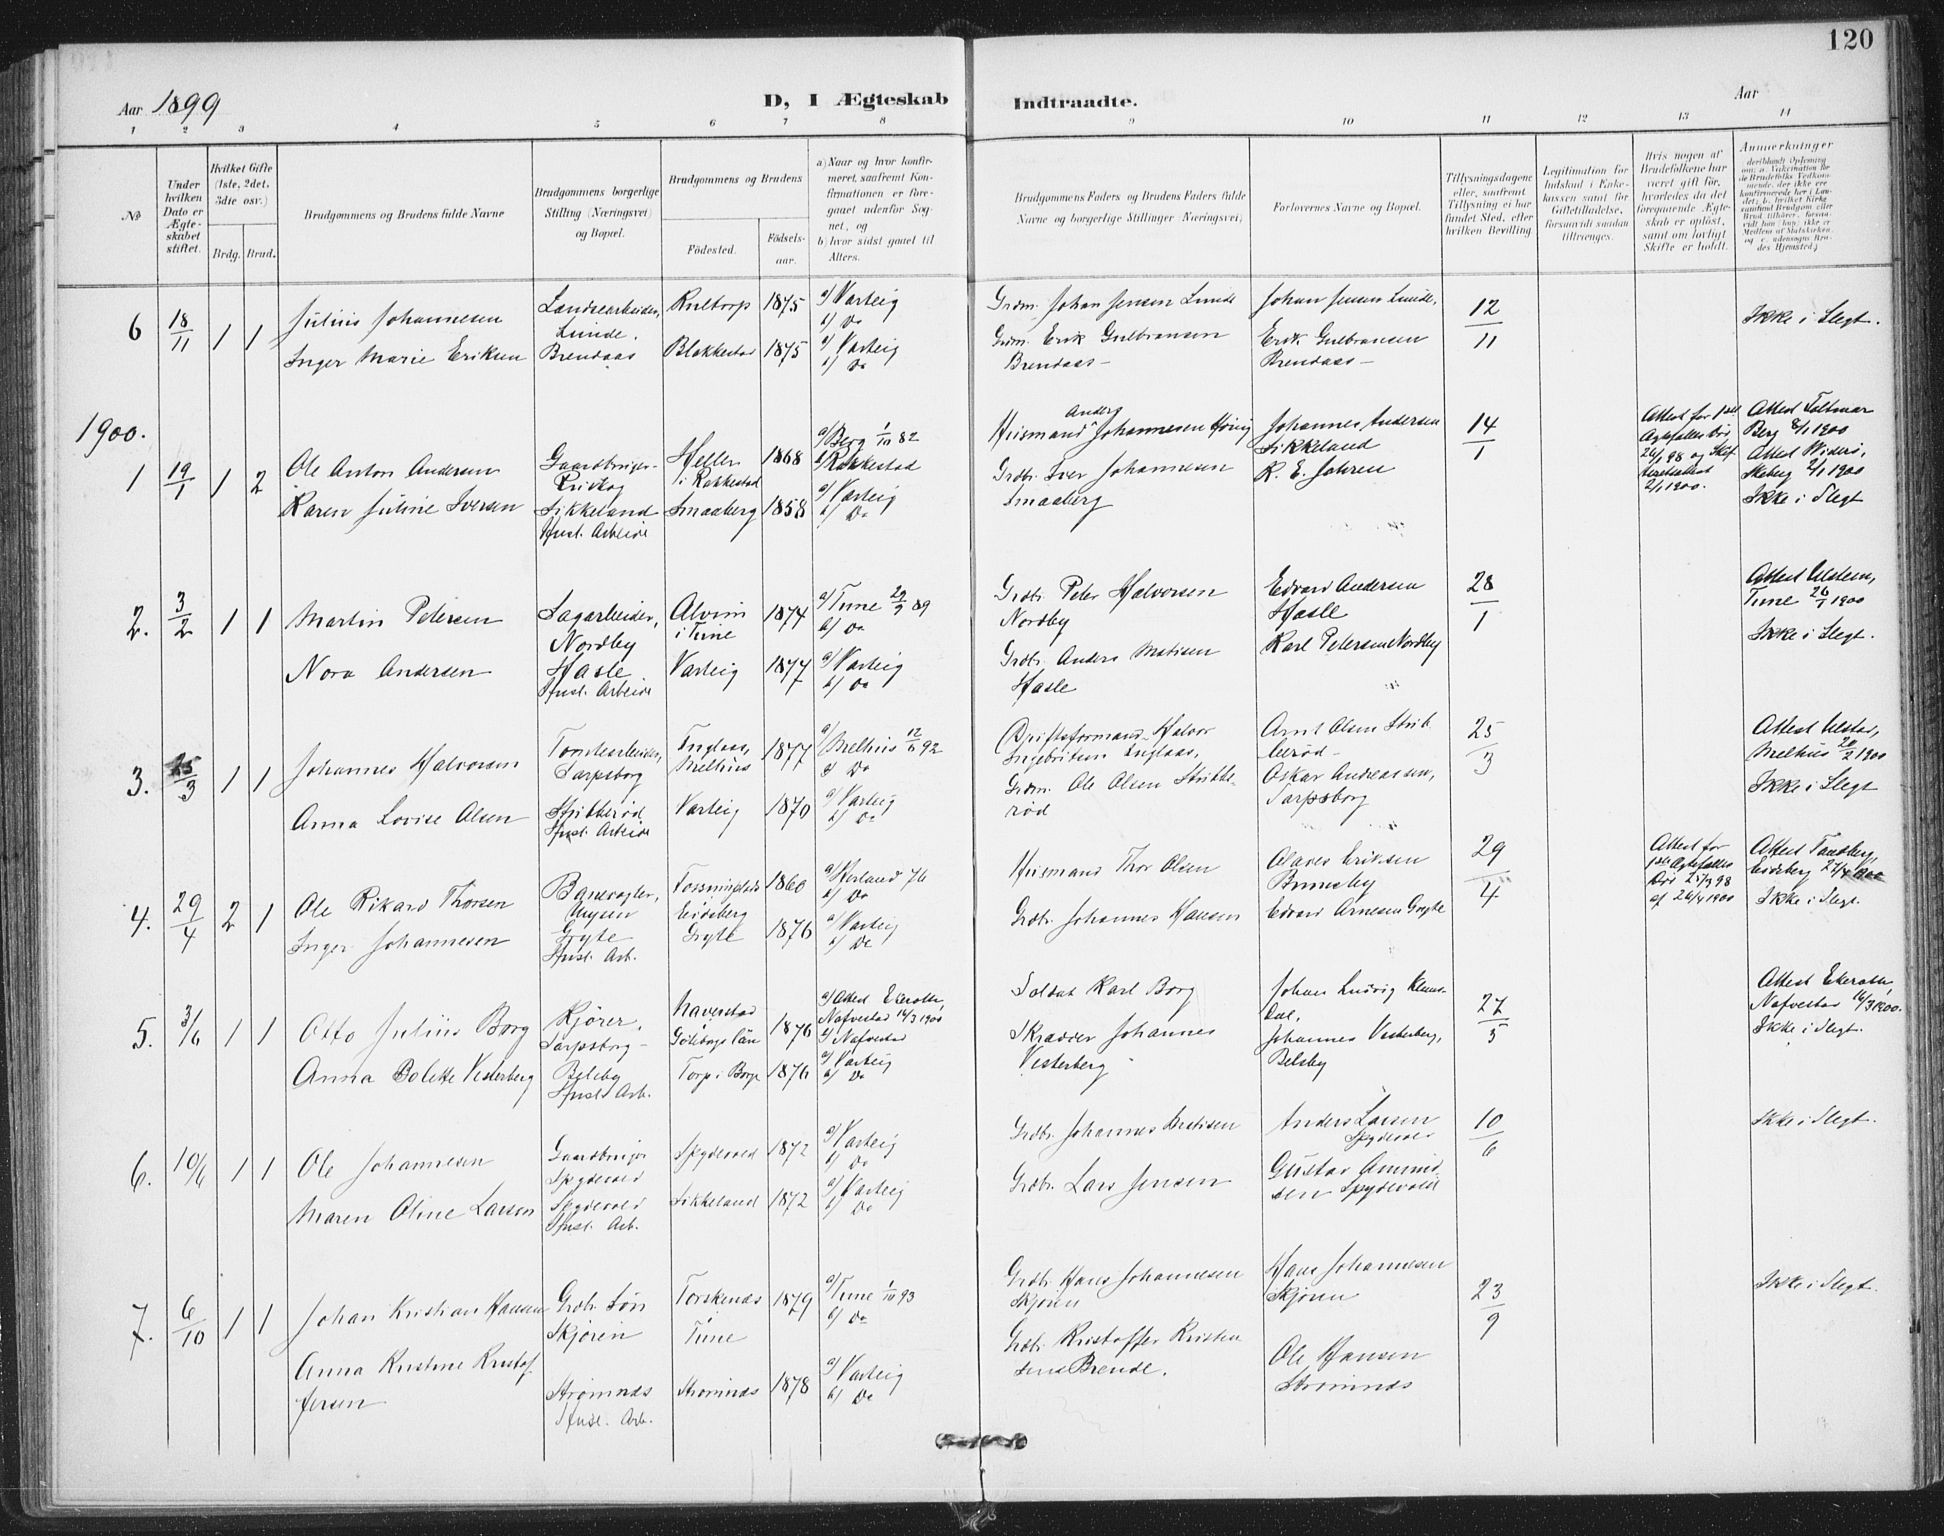 120
Aar 1899
D, I Ægteskab Indtraadte.
Aar
1 2 3 4 5 6 7 8 9 10 11 12 13 14
No
Under hvilken Dato er Ægteskabet stiftet.
Hvilket Gifte (1ste, 2det, 3die osv.)
Brdg. Brud.
Brudgommens og Brudens fulde Navne
Brudgommens borgerlige Stilling (Næringsvei) og Bopæl.
Brudgommens og Brudens
Fødested.
Fødselsaar.
a) Naar og hvor konfirmeret, saafremt Konfirmationen er foregaaet udenfor Sognet, og
b) hvor sidst gaaet til Alters.
Brudgommens Faders og Brudens Faders fulde Navne og borgerlige Stillinger (Næringsvei)
Forlovernes Navne og Bopæl.
Tillysningsdagene eller, saafremt Tillysning ei har fundet Sted, efter hvilken Bevilling
Legitimation for Indskud i Enkekassen samt for Giftetilladelse, forsaavidt saadan tiltrænges.
Hvis nogen af Brudefolkene har været gift før, hvorledes da det foregaaende Ægteskab er opløst, samt om lovligt Skifte er holdt.
Anmerkninger
6 18/11 1 1
Julius Johannesen
Inger Marie Eriksen
Landsearbeider,
Lunde.
Brendaas
Rultorp 1875
Blakkestad 1875
a) Varteig
b) Do
a) Varteig
b) Do
Grdm. Johan Jensen Lunde
Grdm. Erik Gulbransen
Brendaas
Johan Jensen Lunde,
Erik Gulbransen
Brendaas
12/11
Ikke i Slegt.
1900.
1 19/1 1 2
Ole Anton Andersen
Karen Juline Iversen
Gaardbruger
Sikkeland
Husl. Arbeide
Heller
i Rakkestad
1868
Smaaberg 1858
a) Berg 1/10 82
b) Rakkestad
a) Varteig
b) Do
Husmand Anders Johannesen
Grdbr. Iver Johannesen
Smaaberg
Johannes Andersen
Sikkeland
R. E. Johren
14/1
Attest for 1ste
Ægtefælles Død
26/1 98 og
2/1 1900.
Attest
Berg 8/1 1900
Skeberg 2/1 1900
Ikke i Slegt
2. 3/2 1 1
Martin Petersen
Nora Andersen
Sagarbeider,
Nordby
Hasle
Husl. Arbeide
Alvim
i Tune
1874
Varteig 1877
a) Tune 29/9 89
b) Do
a) Varteig
b) Do
Grdbr. Peter Halvorsen
Nordby
Grdbr. Anders Matisen
Hasle
Edvard Andersen
Hasle
Karl Petersen Nordby
28/1
Attest Ulstein,
Tune 26/1 1900
Ikke i Slegt.
3. 25/3 1 1
Johannes Halvorsen
Anna Lovise Olsen
Tomtearbeider,
Sarpsborg
Stribberød
Husl. Arbeide
Inglaas,
Melhus
1877
Varteig 1870
a) Melhus 12/11 92
b) Do
a) Varteig
b) Do
Driftsformand Halvor
Ingebritsen Inglaas,
Grdm. Ole Olsen Stribberød
Arnt Olsen Stribberød
Oskar Andreassen,
Sarpsborg
25/3
Attest Ulstad,
Melhus 20/2 1900
Ikke i Slegt
4. 29/4 2 1
Ole Rikard Thorsen
Inger Johannesen
Banevogter,
Gryte
Husl. Arb.
Eidsberg
1860
Gryte 1876
a) Herland 76
b) Do
a) Varteig
b) Do
Husmand Thor Olsen
Grdbr. Johannes Hansen
Olaves Eriksen
Edvard Arnesen Gryte
29/4
Attest for
1ste Ægtefælles
Død 25/9 98
af 26/4 1900
Attest Tandberg,
Eidsberg 27/4 1900
Ikke i Slegt.
5. 3/6 1 1
Otto Julius Borg
Anna Bolette Vesterberg
Kjører,
Sarpsborg
Belsby
Husl. Arb.
Naverstad
Göteborgs Län
1876
Torp i Borge 1876
a) Attest Ekeroth,
Nafvestad 16/3 1900
b) Nafvestad
a) Varteig
b) Do
Soldat Karl Borg
Skrædder Johannes
Vesterberg
Johan Ludvig Klausdal,
Johannes Vesterberg,
Belsby
27/5
Attest Ekeroth,
Nafvestad 16/3 1900.
Ikke i Slegt.
6. 10/6 1 1
Ole Johannesen
Maren Oline Larsen
Gaardbruger
Spydevold
Spydevold
Husl. Arb.
Spydevold 1872
Sikkeland 1872
a) Varteig
b) Do
a) Varteig
b) Do
Grdbr. Johannes Matisen
Grdbr. Lars Jensen
Anders Larsen
Spydevold
Gustav Amundsen Spydevold
10/6
Ikke i Slegt.
7. 6/10 1 1
Johan Kristian Hansen
Anna Kristine Kristofersen
Grdbr. Søn
Skjøren
Strømnæs
Husl. Arb.
Torskenæs
Tune
1879
Strømnæs 1878
a) Tune 1/10 93
b) Do
a) Varteig
b) Do
Grdbr. Hans Johannesen
Skjøren
Grdbr. Kristoffer Kristensen Brende.
Hans Johannesen
Skjøren
Ole Hansen
Strømnæs
23/9
Ikke i Slegt.